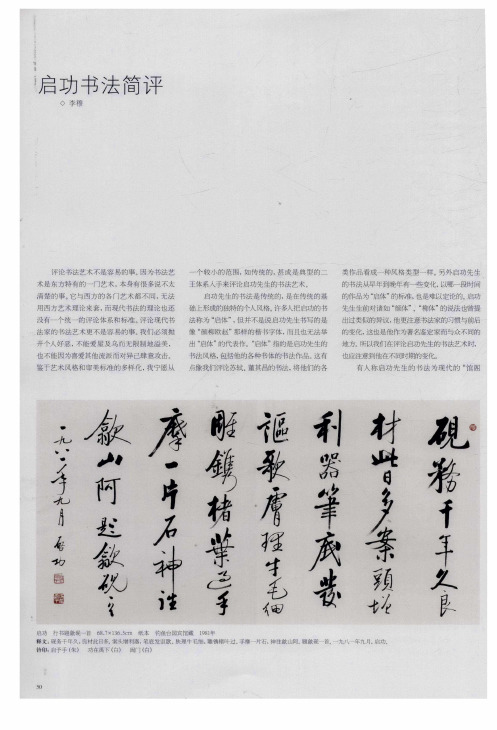 启功书法简评
◇ 李穆
评论书法艺术不是容易的事。因为书法艺
术是东方特有的一门艺术，本身有很多说不太
清楚的事。它与西方的各门艺术都不同，无法
用西方艺术理论来套，而现代书法的理论也还
没有一个统一的评论体系和标准。评论现代书
法家的书法艺术更不是容易的事。我们必须抛
开个人好恶，不能爱屋及乌而无限制地溢美，
也不能因为喜爱其他流派而对异己肆意攻击。
鉴于艺术风格和审美标准的多样化，我宁愿从
一个较小的范围，如传统的，甚或是典型的二
王体系入手来评论启功先生的书法艺术。
启功先生的书法是传统的，是在传统的基
础上形成的独特的个人风格。许多人把启功的书
法称为“启体”，但并不是说启功先生书写的是
像“颜柳欧赵”那样的楷书字体，而且也无法举
出“启体”的代表作。“启体”指的是启功先生的
书法风格，包括他的各种书体的书法作品。这有
点像我们评论苏轼、董其昌的书法，将他们的各
类作品看成一种风格类型一样。另外启功先生
的书法从早年到晚年有一些变化，以哪一段时间
的作品为“启体”的标准，也是难以定论的。启功
先生生前对诸如“颜体”、“柳体”的说法也曾提
出过类似的异议，他更注意书法家的习惯与前后
的变化，这也是他作为著名鉴定家而与众不同的
地方。所以我们在评论启功先生的书法艺术时，
也应注意到他在不同时期的变化。
有人称启功先生的书法为现代的“馆阁
硯務千年久良
材此日多案頭增
利器筆底發
謳歌膚理牛毛細
雕鎸楮葉過手
摩一片石神往
歙山阿 題歙硯之一
一九八一年九月 啟功
启功 行书题歙砚一首 68.7×136.5cm 纸本 钓鱼台国宾馆藏 1981年
释文：砚务千年久，良材此日多。案头增利器，笔底发讴歌。肤理牛毛细，雕镌楮叶过。手摩一片石，神往歙山阿。题歙砚一首。一九八一年九月，启功。
50